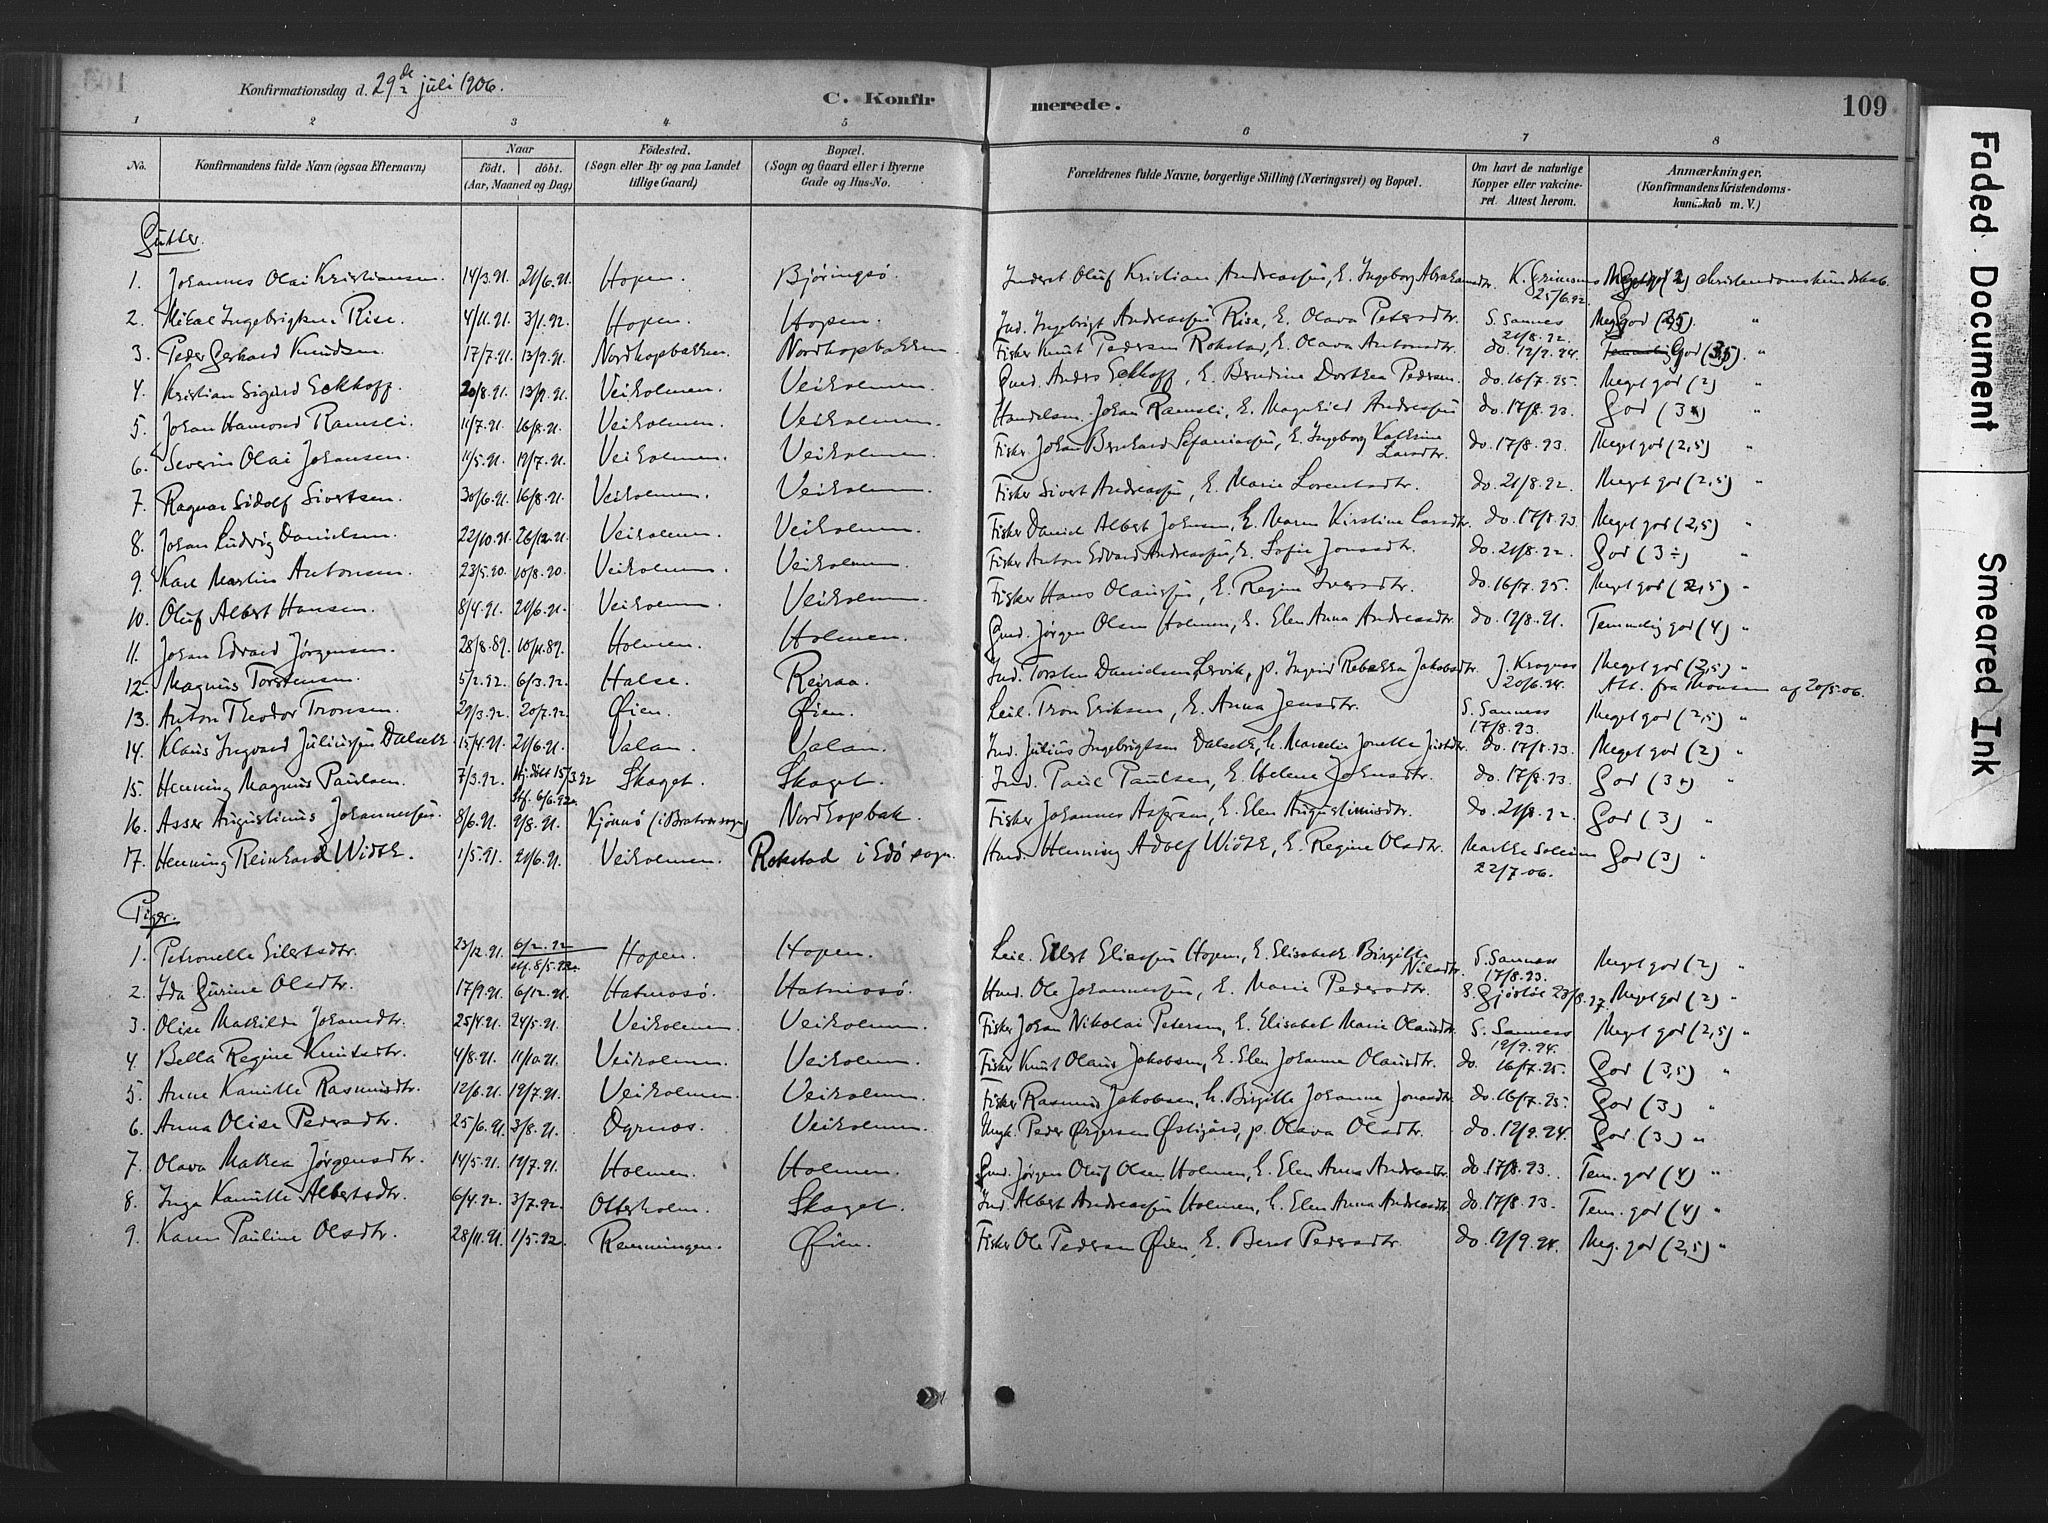 Konfirmationsdag d. 29de juli 1906.
C. Konfirmerede.
109
1 2 3 4 5 6 7 8
No. Konfirmandens fulde Navn (ogsaa Efternavn) Naar født. døbt. (Aar, Maaned og Dag) Fødested. (Sogn eller By og paa Landet tillige Gaard) Bopæl. (Sogn og Gaard eller i Byerne Gade og Hus-No. Forældrenes fulde Navne, borgerlige Stilling (Næringsvei) og Bopæl. Om havt de naturlige Kopper eller vakcineret. Attest herom. Anmærkninger. (Konfirmandens Kristendomskundskab m. V.)
Gutter.
1. Johannes Olai Kristiansen. 14/3.91. 21/6.91. Hopen. Bjøringsø. Inderst Oluf Kristian Andreassen, E. Ingeborg Abrahamsdtr. 25/6.92 Meget god (2) christendomskundskab.
2. Mikal Ingebrigtsen Rise. 4/11.91. 3/1.92. Hopen. Hopen. Ind. Ingebrigt Andreassen Rise, E. Olava Petersdtr. S. Sannes 21/8.92. Meg. god (2,5). "
3. Peder Gerhard Knudsen. 17/7.91. 13/9.91. Nordhopbakken. Nordhopbakken. Fisker Knut Pedersen Rokstad, E. Olava Antonsdtr. do. 12/9.94. God (3,5). "
4. Kristian Sigurd Eckhoff. 20/8.91. 13/9.91. Veiholmen. Veiholmen. Gmd. Anders Eckhoff, E. Berndine Dorthea Pedersen. do. 16/7.95. Meget god (2) "
5. Johan Hamond Ramsli. 11/7.91. 16/8.91. Veiholmen. Veiholmen. Handelsm. Johan Ramsli, E. Magnhild Andreassen do. 17/8.93. God (3) "
6. Severin Olai Johansen. 11/5.91. 19/7.91. Veiholmen. Veiholmen. Fisker Johan Bernhard Stefaniassen, E. Ingeborg Kathrine Larsdtr. do. 17/8.93. Meget god (2,5) "
7. Ragnar Sidolf Sivertsen. 30/6.91. 16/8.91. Veiholmen. Veiholmen. Fisker Sivert Andreassen, E. Marie Lorentsdtr. do. 21/8.92. Meget god (2,5) "
8. Johan Ludvig Danielsen. 22/10.91. 26/12.91. Veiholmen. Veiholmen. Fisker Daniel Albert Johnsen, E. Maren Kirstine Larsdtr. do. 17/8.93. Meget god (2,5) "
9. Karl Martin Antonsen. 23/5.90. 10/8.90. Veiholmen. Veiholmen. Fisker Anton Edvard Andreassen, E. Sofie Jonasdtr. do. 21/8.92. God (3÷) "
10. Oluf Albert Hansen. 8/4.91. 21/6.91. Veiholmen. Veiholmen. Fisker Hans Olaussen, E. Regine Iversdtr. do. 16/7.95. Meget god (2,5) "
11. Johan Edvard Jørgensen. 28/8.89. 10/11.89. Holmen. Holmen. Gmd. Jørgen Olsen Holmen, E. Elen Anna Andreasdtr. do. 19/8.91. Temmelig god (4) "
12. Magnus Torstensen. 5/2.92. 6/3.92. Halse. Reiraa. Ind. Torsten Danielsen Lervik, p. Ingrid Rebekka Jakobsdtr. J. Kragnes 20/6.94. Meget god (2,5) " Att. fra af 20/5.06.
13. Anton Theodor Tronsen. 29/3.92. 20/7.92. Øien. Øien. Leil. Tron Eriksen, E. Anna Jensdtr. S. Sannes 17/8.93. Meget god (2,5) "
14. Klaus Ingvard Juliussen Dalsett. 15/4.91. 21/6.91. Valan. Valan. Ind. Julius Ingebrigtsen Dalseth, E. Marselie Jonette do. 17/8.93. Meget god (2) "
15. Henning Magnus Paulsen. 7/3.92. Hj.døbt 15/3.92 Stf. 6/6.92. Skaget. Skaget. Ind. Paul Paulsen, E. Helene Johnsdtr. do. 17/8.93. God (3+) "
16. Asser Augustinus Johannessen. 8/6.91. 9/8.91. Kjønnø (i Bratvær sogn) Nordhopbak. Fisker Johannes Assersen, E. Elen Augustinusdtr. do. 21/8.92. God (3) "
17. Henning Reinhard Width. 1/5.91. 21/6.91. Veiholmen. Rokstad i Edø sogn. Hand. Henning Adolf Width, E. Regine Olsdtr. Marthe Soleim 22/7.06. God (3) "
Piger.
1. Petronelle Eilertsdtr. 23/12.91. 6/2.92 stf. 8/5.92. Hopen. Hopen. Leil. Eilert Eliassen Hopen, E. Elisabeth Birgitte Nilsdtr. S. Sannes 17/8.93. Meget god (2) "
2. Ida Gurine Olsdtr. 17/9.91. 6/12.91. Hatmosø. Hatmosø. Hand. Ole Johannessen, E. Marie Pedersdtr. 23/8.97. Meget god (2) "
3. Olise Mathilde Johansdtr. 25/4.91. 24/5.91. Veiholmen. Veiholmen. Fisker Johan Nikolai Petersen, E. Elisabet Marie Olausdtr. S. Sannes 12/9.94. Meget god (2,5) "
4. Bella Regine Knutsdtr. 4/8.91. 11/10.91. Veiholmen. Veiholmen. Fisker Knut Olaus Jakobsen, E. Elen Johanne Olausdtr. do. 16/7.95. God (3,5) "
5. Anne Kamille Rasmusdtr. 12/6.91. 19/7.91. Veiholmen. Veiholmen. Fisker Rasmus Jakobsen, E. Birgitte Johanne Jonasdtr. do. 16/7.95. God (3) "
6. Anna Olise Pedersdtr. 25/6.91. 3/8.91. Dyrnes. Veiholmen. Ungk. Peder Ørgersen Østigård, p. Olava Olsdtr. do. 12/9.94. God (3) "
7. Olava Mathea Jørgensdtr. 14/5.91. 19/7.91. Holmen. Holmen. Gmd. Jørgen Oluf Olsen Holmen, E. Elen Anna Andreasdtr. do. 17/8.93. Tem. god (4) "
8. Inga Kamille Albertsdtr. 6/4.92. 3/7.92. Otterholm. Skaget. Ind. Albert Andreassen Holmen, E. Elen Anna Andreasdtr. do. 17/8.93. Tem. god (4) "
9. Karen Pauline Olsdtr. 28/11.91. 1/5.92. Remmingen. Øien. Fisker Ole Pedersen Øien, E. Beret Pedersdtr. do. 12/9.94. Meg. god (2,5) "
Faded Document
Smeared Ink